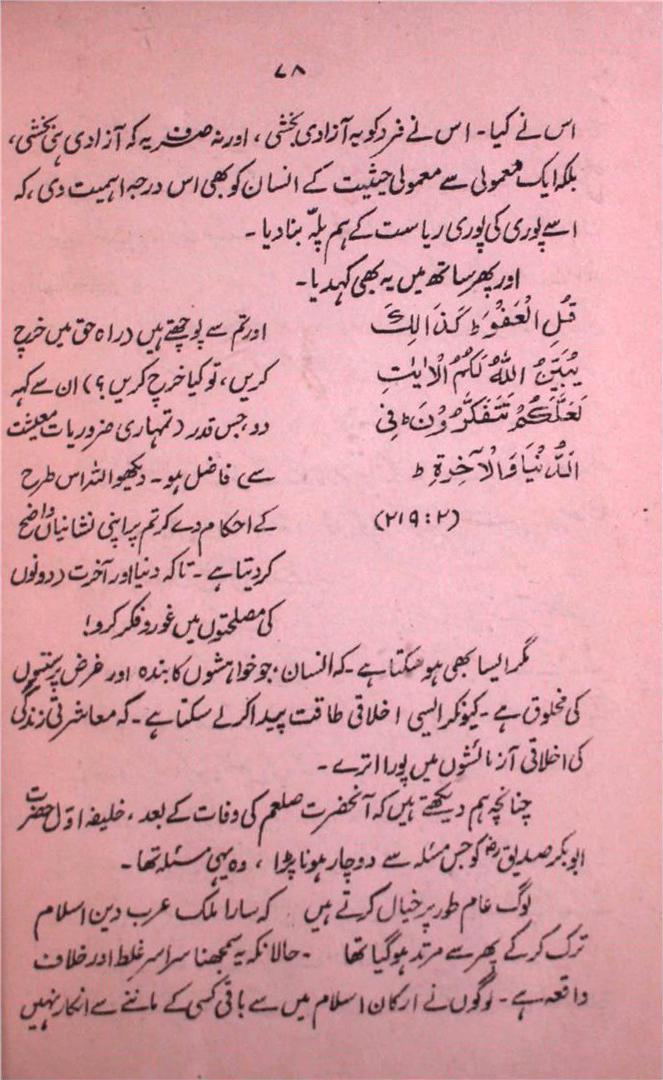 ۷۸
اس نے کیا۔ اس نے فرد کو یہ آزادی بخشی، اور نہ صرف یہ کہ آزادی ہی بخشی،
بلکہ ایک معمولی سے معمولی حیثیت کے انسان کو بھی اس درجہ اہمیت دی، کہ
اسے پوری کی پوری ریاست کے ہم پلہ بنا دیا۔
اور پھر ساتھ میں یہ بھی کہدیا۔
قُلِ الْعَفْوَ ط كَذَالِكَ
يُبَيِّنُ اللّٰهُ لَكُمُ الْاٰيٰتِ
لَعَلَّكُمْ تَتَفَكَّرُوْنَ ط فِي
الدُّنْيَا وَالْاٰخِرَةِ ط
(۲ : ۲۱۹)
اور تم سے پوچھتے ہیں (راہ حق میں خرچ
کریں، تو کیا خرچ کریں؟) ان سے کہہ
دو جس قدر (تمہاری ضروریات معیشت
سے) فاضل ہو۔ دیکھو اللہ اس طرح
کے احکام دے کر تم پر اپنی نشانیاں واضح
کر دیتا ہے۔ تاکہ دنیا اور آخرت (دونوں
کی مصلحتوں میں غور و فکر کرو!
مگر ایسا بھی ہو سکتا ہے۔ کہ انسان جو خواہشوں کا بندہ اور غرض پرستیوں
کی مخلوق ہے۔ کیونکر ایسی اخلاقی طاقت پیدا کر لے سکتا ہے۔ کہ معاشرتی زندگی
کی اخلاقی آزمائشوں میں پورا اترے۔
چنانچہ ہم دیکھتے ہیں کہ آنحضرت صلعم کی وفات کے بعد، خلیفہ اوّل حضرت
ابوبکر صدیق رضؓ کو جس مسئلہ سے دوچار ہونا پڑا، وہ یہی مسئلہ تھا۔
لوگ عام طور پر خیال کرتے ہیں کہ سارا ملک عرب دین اسلام
ترک کر کے پھر سے مرتد ہو گیا تھا۔ حالانکہ یہ سمجھنا سراسر غلط اور خلاف
واقعہ ہے۔ لوگوں نے ارکان اسلام میں سے باقی کسی کے ماننے سے انکار نہیں